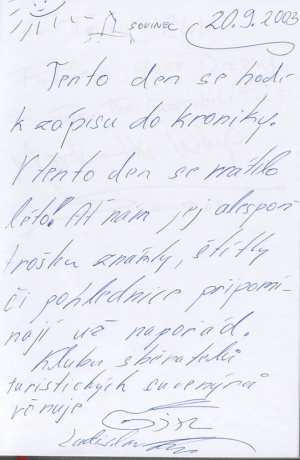 SOVINEC 20.9.2003
Tento den se hodí
k zápisu do kroniky.
V tento den se vrátilo
léto! Ať nám jej alespoň
trošku známky, štítky
či pohlednice připomí-
nají už napořád.
Klubu sběratelů
turistických suvenýrů
věnuje
Ladislav